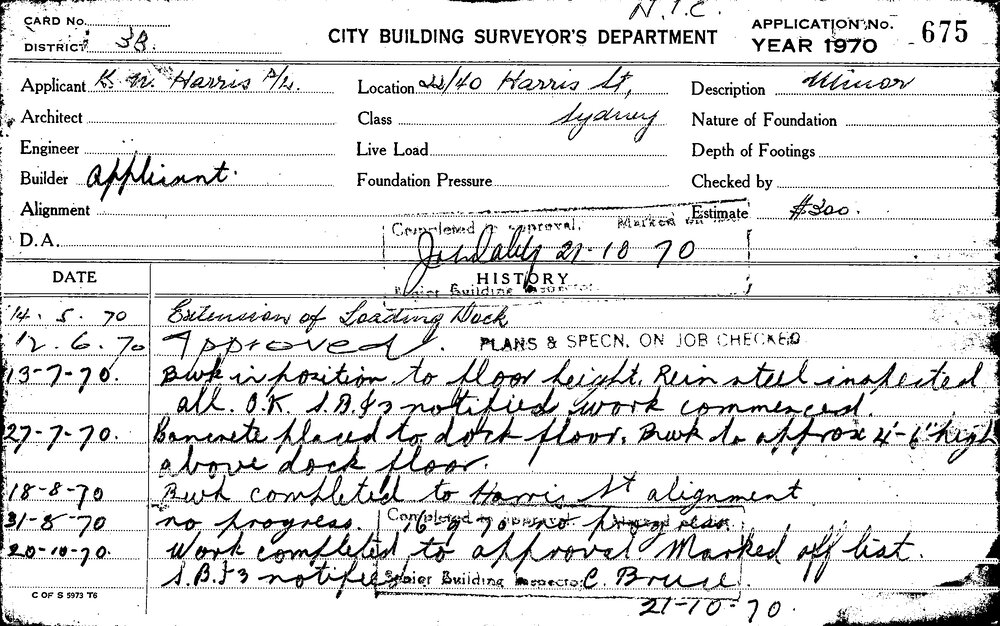 N.I.C.
CARD No.
DISTRICT 3B.
CITY BUILDING SURVEYOR'S DEPARTMENT
APPLICATION No. 675
YEAR 1970
Applicant K. W. Harris P/L. Location 22/40 Harris St, Description Minor
Architect Class Sydney Nature of Foundation
Engineer Live Load Depth of Footings
Builder Applicant. Foundation Pressure Checked by
Alignment Estimate $300.
Completed to approval. Marked
D.A. 21-10 70
DATE HISTORY
Senior Building Inspector
14. 5. 70 Extension of Loading Dock
12. 6. 70 Approved. PLANS & SPECN. ON JOB CHECKED
13-7-70. Bwk in position to floor height. Rein steel inspected
all. O.K. S.B.I3 notified work commenced.
27-7-70. Concrete placed to dock floor. Bwk to approx 4'-6" high
above dock floor.
18-8-70 Bwk completed to Harris St alignment
31-8-70 no progress. 16-9-70 no progress.
Completed to approval
20-10-70. Work completed to approval Marked off list.
S.B.I3 notified Senior Building Inspector C. Bruce.
21-10-70.
C OF S 5973 T6